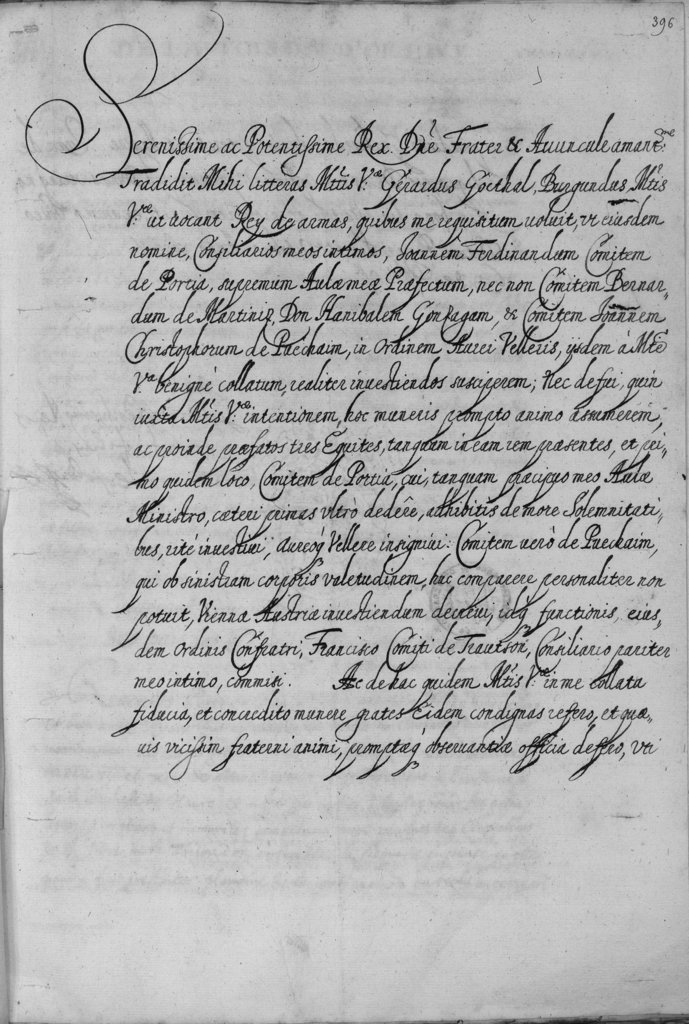 396
Serenissime ac Potentissime Rex. Dñe Frater & Avuncule amantme:
Tradidit Mihi litteras Mtis Vrae Gerardus Goethal, Burgundus, Mtis
Vrae ut vocant Rey de armas, quibus me requisitum voluit, vt eiusdem
nomine, Consiliarios meos intimos, Joannem Ferdinandum Comitem
de Portia, supremum Aulæ meæ Præfectum, nec non Comitem Bernar-
dum de Martiniz, Don Hanibalem Gonzagam, & Comitem Joannem
Christophorum de Puechaim, in ordinem Aurei Velleris, ijsdem à Mte
Vra benignè collatum, realiter investiendos susciperem; Nec defui, quin
iuxta Mtis Vrae intentionem, hoc muneris prompto animo assumerem,
ac proinde præfatos tres Equites, tanquam in eam rem præsentes, et pri-
mo quidem loco, Comitem de Portia, cui, tanquam præcipuo meo Aulæ
Ministro, cæteri primas vltrò dedêre, adhibitis de more Solemnitati-
bus, ritè investivi, Aureoq Vellere insignivi: Comitem verò de Puechaim,
qui ob sinistram corporis valetudinem, huc comparere personaliter non
potuit, Viennæ Austriæ investiendum decrevi, idq functionis, eius-
dem ordinis Confratri, Francisco Comiti de Trautson, Consiliario pariter
meo intimo, commisi. Ac de hac quidem Mtis Vrae in me collata
fiducia, et concredito munere grates Eidem condignas refero, et quæ-
vis vicissim fraterni animi, promptæq observantiæ officia defero, vti